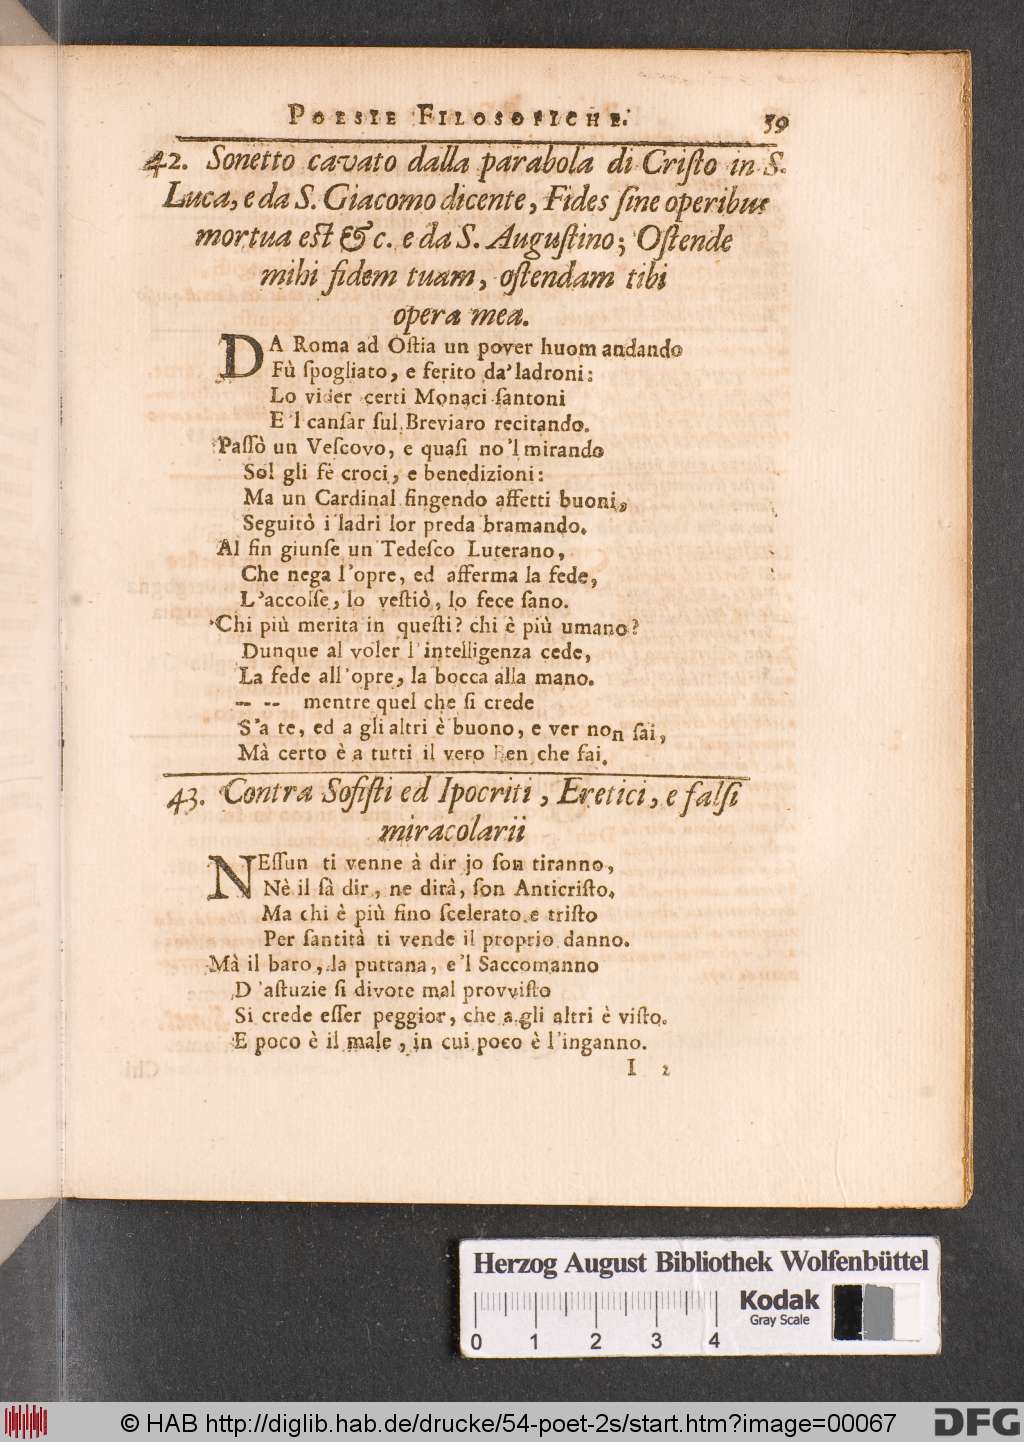 POESIE FILOSOFICHE. 59
42. Sonetto cavato dalla parabola di Criſto in S.
Luca, e da S. Giacomo dicente, Fides ſine operibus
mortua eſt & c. e da S. Auguſtino; Oſtende
mihi fidem tuam, oſtendam tibi
opera mea.
DA Roma ad Oſtia un pover huom andando
Fù ſpogliato, e ferito da'ladroni:
Lo vider certi Monaci ſantoni
E'l canſar ſul Breviaro recitando.
Paſſò un Veſcovo, e quaſi no'l mirando
Sol gli fè croci, e benedizioni:
Ma un Cardinal fingendo affetti buoni,
Seguitò i ladri lor preda bramando.
Al fin giunſe un Tedeſco Luterano,
Che nega l'opre, ed afferma la fede,
L'accolſe, lo veſtiò, lo fece ſano.
Chi più merita in queſti? chi è più umano?
Dunque al voler l'intelligenza cede,
La fede all'opre, la bocca alla mano.
-- -- mentre quel che ſi crede
S'a te, ed a gli altri è buono, e ver non ſai,
Mà certo è a tutti il vero Ben che fai.
43. Contra Sofiſti ed Ipocriti, Eretici, e falſi
miracolarii
NEſſun ti venne à dir jo ſon tiranno,
Nè il ſà dir, ne dirà, ſon Anticriſto,
Ma chi è più fino ſcelerato e triſto
Per ſantità ti vende il proprio danno.
Mà il baro, la puttana, e'l Saccomanno
D'aſtuzie ſi divote mal provviſto
Si crede eſſer peggior, che a gli altri è viſto.
E poco è il male, in cui poco è l'inganno.
I 2
Herzog August Bibliothek Wolfenbüttel
0 1 2 3 4
Kodak
Gray Scale
© HAB http://diglib.hab.de/drucke/54-poet-2s/start.htm?image=00067
DFG